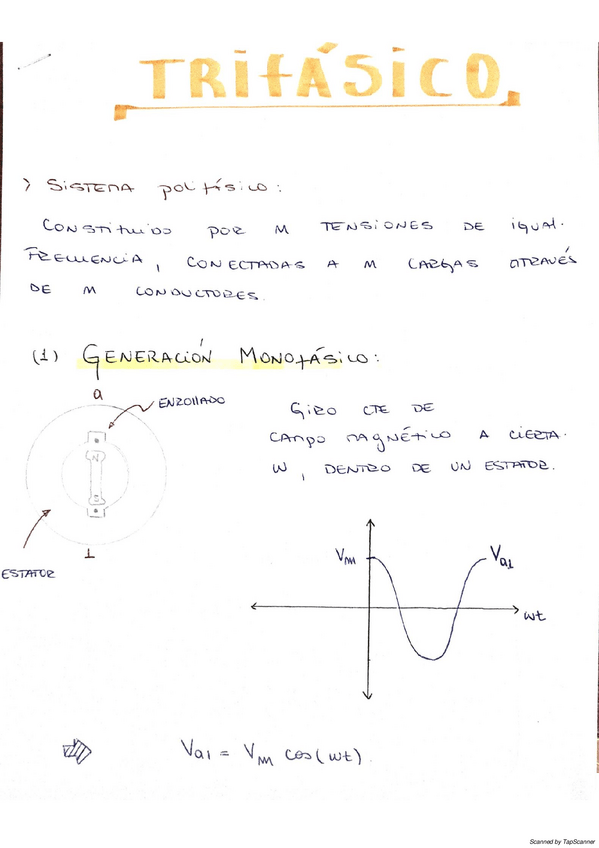 TRIFÁSICO.
> SISTEMA polifásico:
CONSTITUIDO POR M TENSIONES DE igual.
FRECUENCIA, CONECTADAS A M CARGAS ATRAVÉS
DE M CONDUCTORES.
(1) GENERACIÓN MONOFÁSICO:
a
ENROLLADO
GIRO CTE DE
CAMPO MAGNÉTICO A CIERTA.
W, DENTRO DE UN ESTATOR.
N
S
1
ESTATOR
Vm
Va1
wt
Va1 = Vm cos(wt).
Scanned by TapScanner